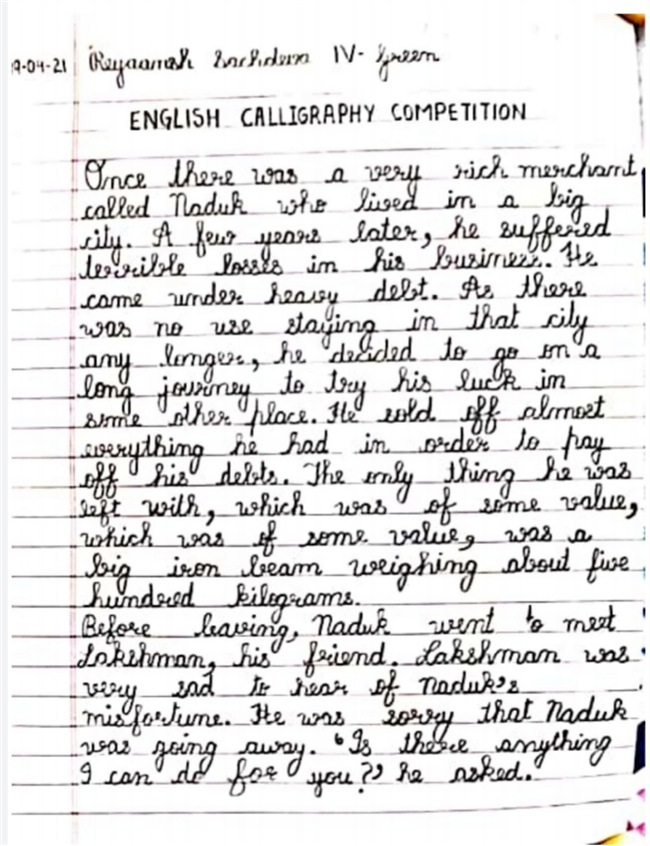 9-04-21 Reyaansh Sachdeva IV- Green
ENGLISH CALLIGRAPHY COMPETITION
Once there was a very rich merchant
called Naduk who lived in a big
city. A few years later, he suffered
terrible losses in his business. He
came under heavy debt. As there
was no use staying in that city
any longer, he decided to go on a
long journey to try his luck in
some other place. He sold off almost
everything he had in order to pay
off his debts. The only thing he was
left with, which was of some value,
which was of some value, was a
big iron beam weighing about five
hundred kilograms.
Before leaving, Naduk went to meet
Lakshman, his friend. Lakshman was
very sad to hear of Naduk's
misfortune. He was sorry that Naduk
was going away. "Is there anything
I can do for you?" he asked.